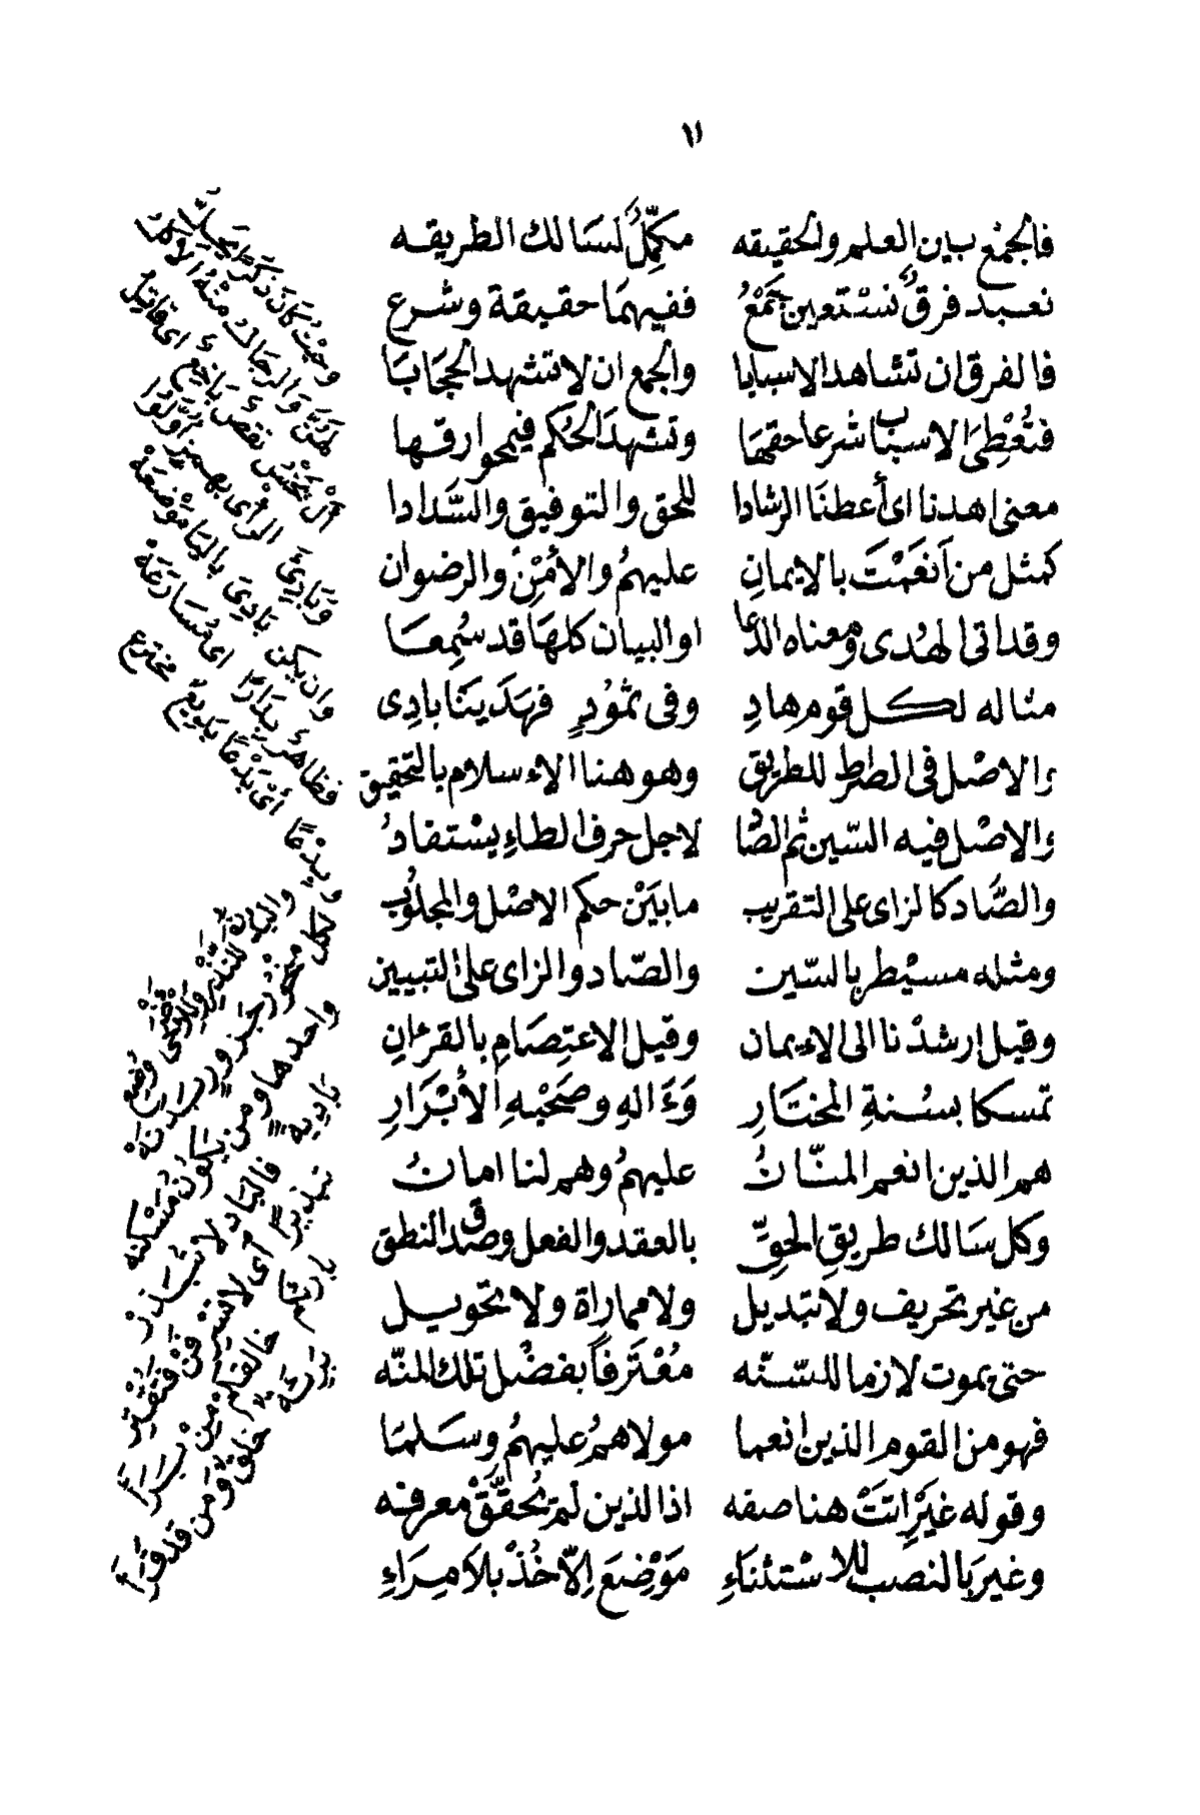 ١١
فالجمع بين العلم والحقيقه مكمِّلٌ لسَالك الطريقه
نعبد فرقٌ نسْتعين جَمْعُ ففيهمَا حقيقة وشرع
فالفرق ان تشاهد الاسبابا والجمع ان لا تشهد الحِجَابَا
فتُعْطِىَ الاسباب شرعا حقهَا وتشهدَ الحُكم فيمحو ارقّها
معنى اهدنا اى أعطنَا الرشادا للحق والتوفيق والسَّدادا
كمثل من اَنعَمْتَ بالايمانِ عليهمُ والأمْنِ والرضوان
وقد اتى الهُدى ومعناه الدُّعا او البيان كلهَا قد سُمِعَا
مثاله لكل قوم هادِ وفى ثمُودٍ فهَدَينَا بادِى
والاصْل فى الصّراط للطريق وهو هنا الاءسلام بالتحقيق
والاصْل فيه السّين ثم الصّادُ لاجل حرف الطاءِ يسْتفادُ
والصَّاد كالزاى على التقريب مابيَنْ حكم الاصْل والمجلُوب
ومثله مسيْطر بالسّين والصّاد والزاى علىْ التبيين
وقيل ارشدْنا الى الاءيمان وقيل الاعتِصَامِ بالقرءانِ
تمسكا بسُنةِ المختَارِ وَءَالهِ وصَحْبهِ الأبْرَارِ
هم الذين انعم المنّانُ عليهمُ وهم لنا امانُ
وكل سَالك طريقِ الحقِّ بالعقد والفعل وصدق النطق
من غير تحريف ولا تبديل ولا مماراة ولا تحويل
حتى يموت لازما للسّنّه مُعْتَرفاً بفضْل تلك المنّه
فهو من القوم الذين انعما مولاهمُ عليهمُ وسَلمَا
وقوله غيَرِ اتتْ هنا صفه اذ الذين لمْ تُحقَّقْ معرفه
وغيرَ بالنصب للاسْتثنَاءِ مَوْضِعَ اِلّا خُذْ بلاَ مِرَاءِ
وحيْثُ كانَ ذكرًا يَجيَكَ
لهنَّ والرجَالُ منْهُ
اَلْ بَخْسُ نقصٌ بَاخِعٌ اى قاتِلُ
وَبَادِئَ الرأى بهمزٍ اوّلُوا
وان يكن بَادِىَ باليَا مَوْضعَهْ
فظاهرٌ بِدَارًا اى مُسَارَعَهْ
وبدْعًا أىْ بَدْعًا بَدِيعٌ مخترع
واحدهَا ومن
باديةٍ فالبَاد لا تُبَذِّرْ
تبذيرًا أى لا تسْرِفَنْ فَتَفْتَقِرْ
بارئكم خالقكم مِنْ
بَرِيَّةٍ خلقٌ وَمَن قد قَرَأَ